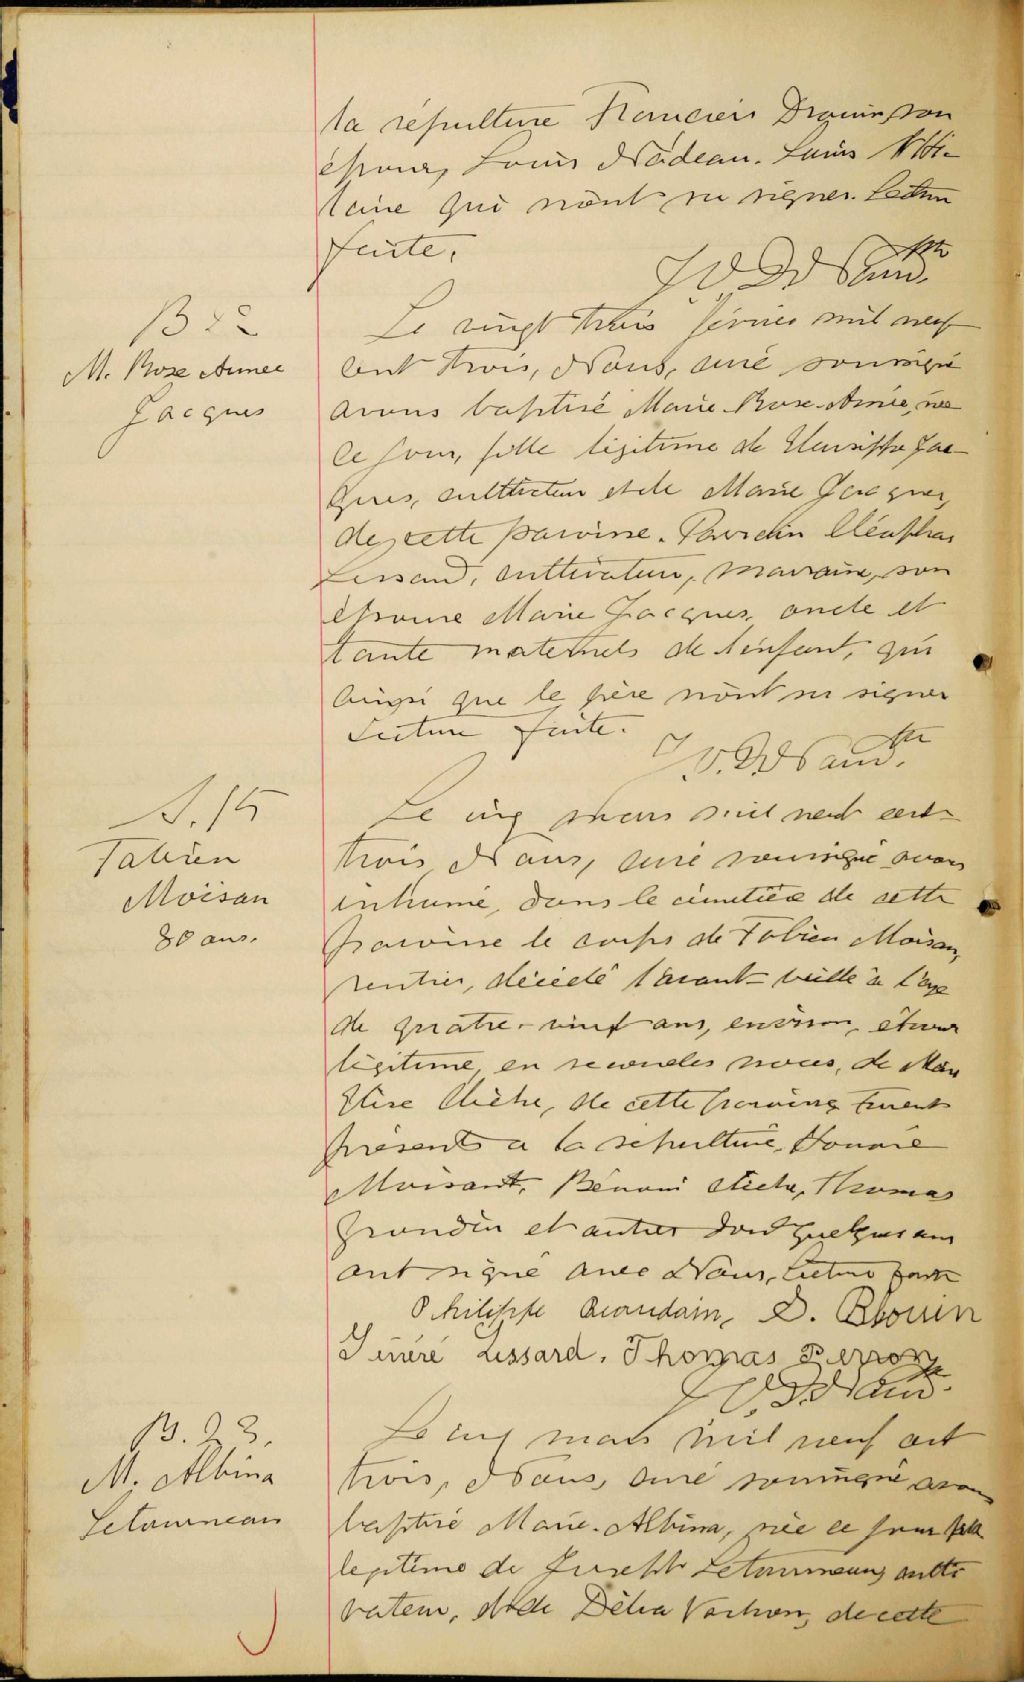 la sépulture Francois Drouin, son
époux, Louis Nadeau. Louis
qui n'ont su signer. Lecture
faite.
Ptre
B 22
M. Rose Aimee
Jacques
Le vingt trois février mil neuf
cent trois, Nous, curé soussigné
avons baptisé Marie-Rose-Aimée, née
ce jour, fille légitime de Jac-
ques, cultivateur et de Marie Jacques,
de cette paroisse. Parrain Cléophas
Lessard, cultivateur, marraine, son
épouse Marie Jacques, oncle et
tante maternels de l'enfant, qui
ainsi que le père n'ont su signer
Lecture faite.
Ptre
S. 15
Fabien
Moisan
80 ans.
Le cinq mars mil neuf cent
trois, Nous, curé soussigné avons
inhumé, dans le cimetière de cette
paroisse le corps de Fabien Moisan,
rentier, décédé l'avant-veille à l'age
de quatre-vingt ans, environ, époux
légitime, en secondes noces, de Marie
Cliche, de cette paroisse. Furent
présents a la sépulture, Honoré
Moisant, Bénoni Cliche, Thomas
Grondin et autres dont quelques uns
ont signé avec Nous, Lecture faite
Philippe Beaudoin, D. Blouin
Lessard. Thomas Perron
Ptre
B. 23.
M. Albina
Letourneau
Le cinq mars mil neuf cent
trois, Nous, curé soussigné avons
baptisé Marie-Albina, née ce jour fille
legitime de Joseph Letourneau, culti
vateur, et de Délia Vachon, de cette